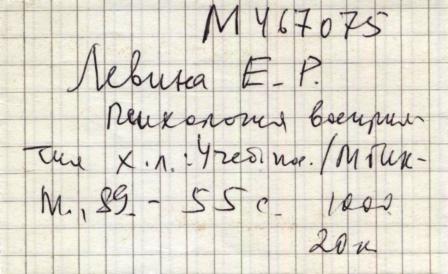 М 467075
Левина Е. Р.
Психология восприя-
тия х. л.: Учеб. пос. / МГИК-
М., 89. - 55 с. 1000
20 к